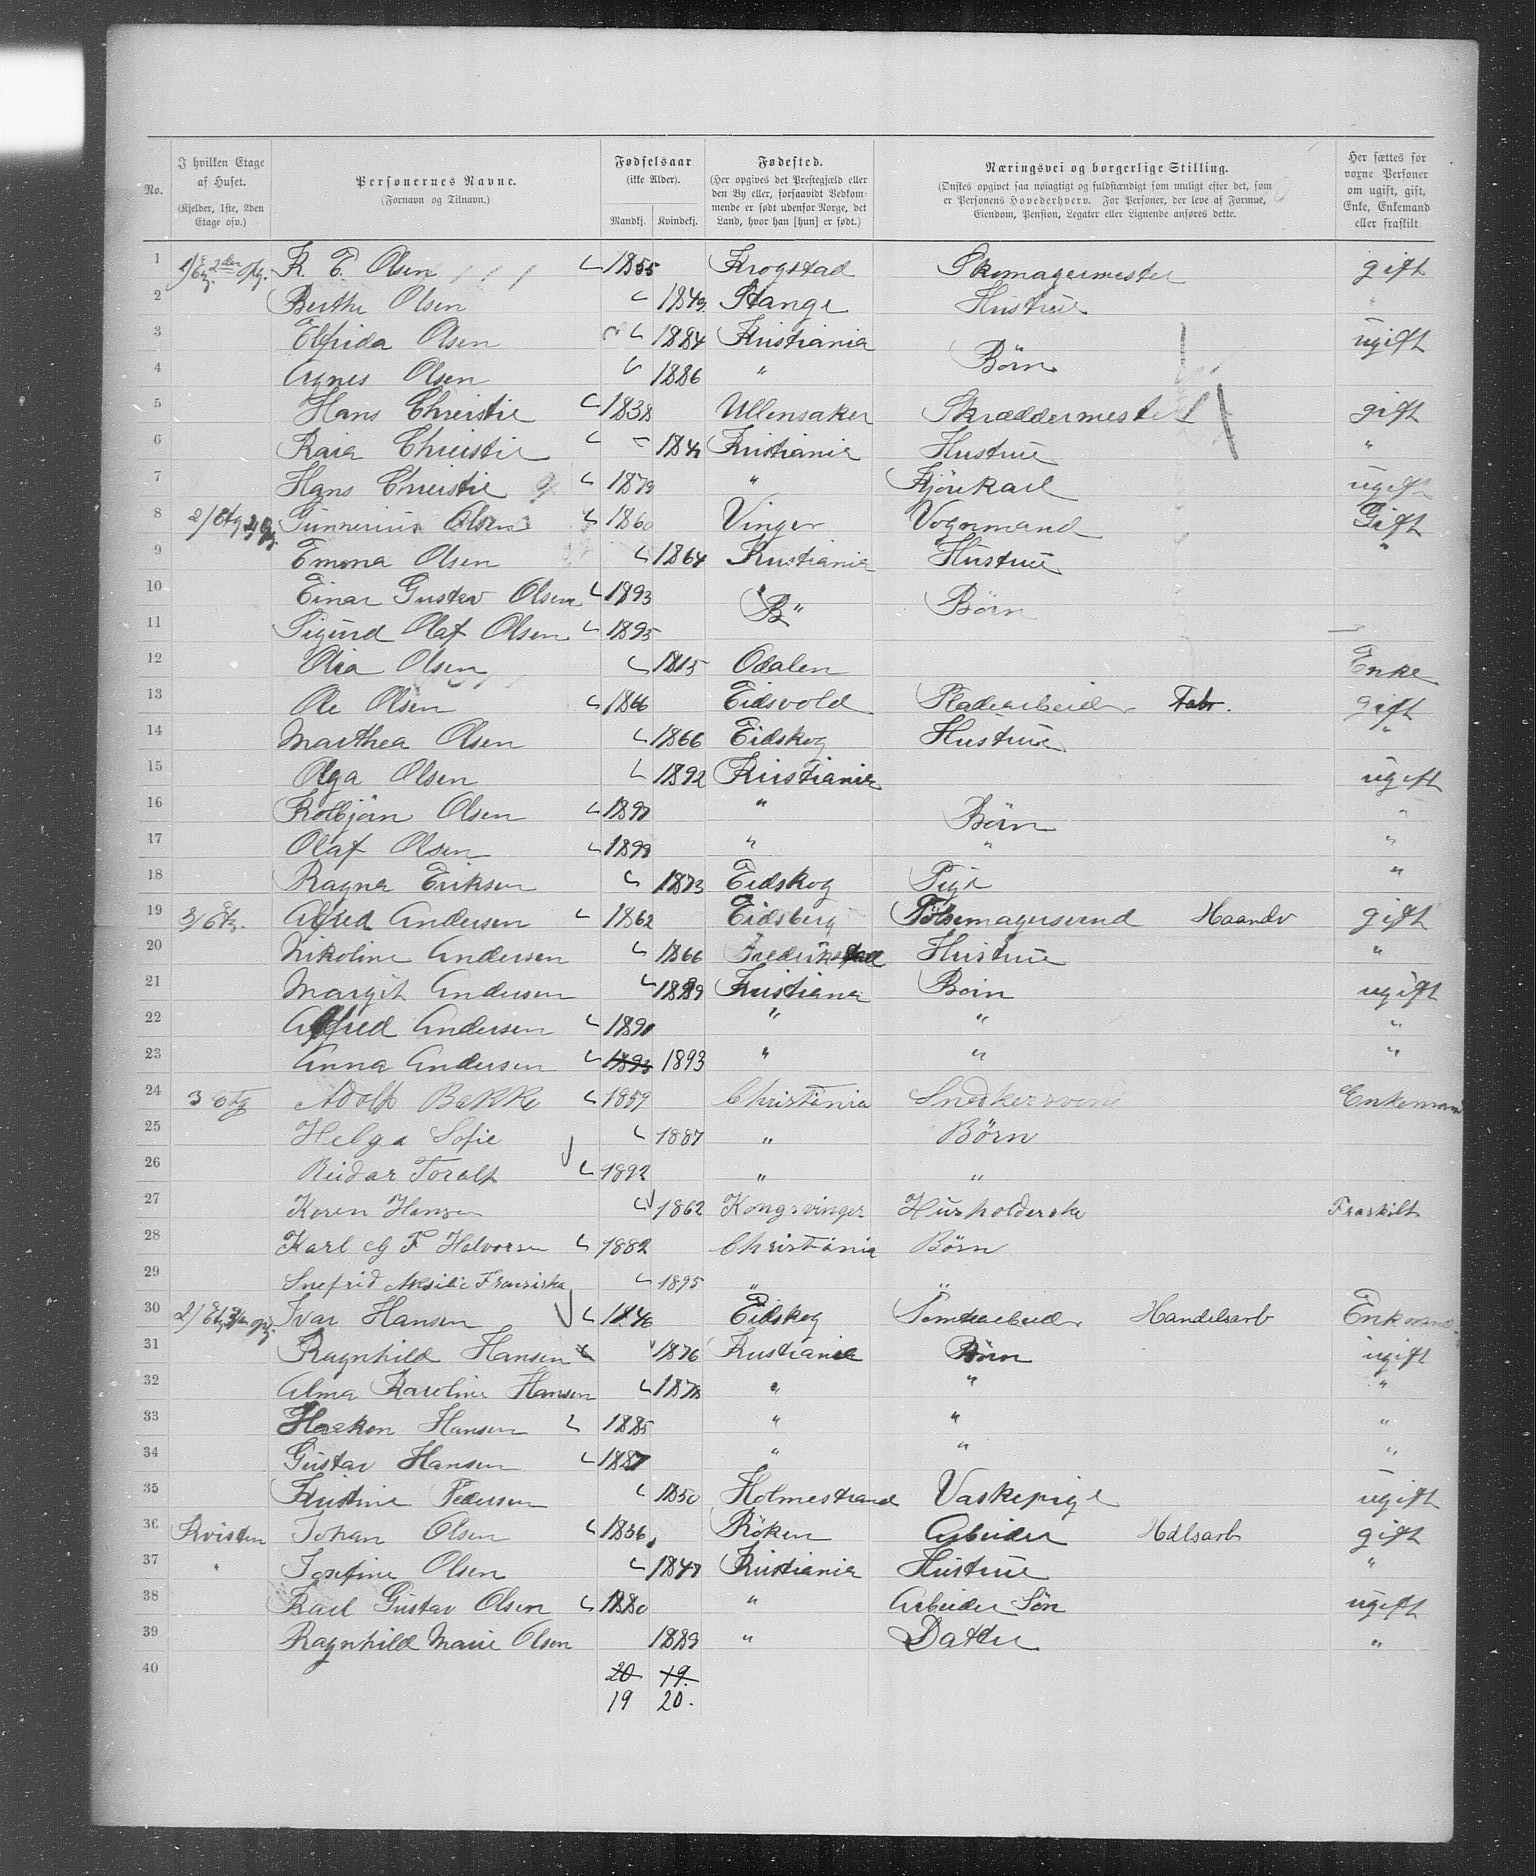 No.
I hvilken Etage af Huset. (Kjelder, 1ste, 2den Etage osv.)
Personernes Navne. (Fornavn og Tilnavn.)
Fødselsaar (ikke Alder). Mandkj. Kvindekj.
Fødested. (Her opgives det Prestegjæld eller den By eller, forsaavidt Vedkommende er født udenfor Norge, det Land, hvor han [hun] er født.)
Næringsvei og borgerlige Stilling. (Ønstes opgivet saa nøiagtigt og fuldstændigt som muligt efter det, som er Personens Hovederhverv. For Personer, der leve af Formue, Eiendom, Pension, Legater eller Lignende anføres dette.
Her sættes for voxne Personer om ugift, gift, Enke, Enkemand eller fraskilt
1 K. E. Olsen 1855 Krogstad Skomagermester gift
2 Berthe Olsen 1849 Stange Hustrue "
3 Elfrida Olsen 1884 Kristiania ugift
4 Agnes Olsen 1886 " Børn
5 Hans Christie 1838 Ullensaker Skræddermester gift
6 Christie Kristiania Hustrue "
7 Hans Christie 1879 " Kjørekarl ugift
8 2/Etg Gunnerius Olsen 1860 Vinger Vognmand Gift
9 Emma Olsen 1864 Kristiania Hustrue "
10 Einar Gustav Olsen 1893 " Børn
11 Sigurd Olaf Olsen 1895
12 Olia Olsen 1815 Odalen Enke
13 Ole Olsen 1866 Eidsvold Pladearbeider Fabr. gift
14 Marthea Olsen 1866 Eidskog Hustrue "
15 Olga Olsen 1892 Kristiania ugift
16 Kolbjørn Olsen " Børn "
17 Olaf Olsen " " "
18 Ragna Eriksen 1873 Eidskog Pige "
19 3/Etg. Alfred Andersen 1862 Eidsberg Pølsemagersvend Haandv gift
20 Nikoline Andersen 1866 Frederikstad Hustrue "
21 Margit Andersen 1889 Kristiania Børn ugift
22 Alfred Andersen 1890 " " "
23 Anna Andersen 1893 1893 " " "
24 3 Etg Adolf Bakke 1859 Christiania Snedkersvend Enkemand
25 Helga Sofie 1887 " Børn
26 Reidar Toralf 1892 " "
27 Karen Hansen 1862 Kongsvinger Husholderske Fraskilt
28 Karl F Halvorsen 1882 Christiania Børn
29 Snefrid Franziska 1895 " "
30 2/Etg Ivar Hansen 1846 Eidskog Tomtearbeider Handelsarb Enkemand
31 Ragnhild Hansen 1876 Kristiania Børn ugift
32 Alma Karoline Hansen 1878 " " "
33 Haakon Hansen 1885 " " "
34 Gustav Hansen 1887 " " "
35 Kristine Pedersen 1850 Holmestrand Vaskepige ugift
36 Kvisten Johan Olsen 1836 Røken Arbeider Hdlsarb gift
37 " Josefine Olsen Kristiania Hustrue "
38 Karl Gustav Olsen 1880 " Arbeider Søn ugift
39 Ragnhild Marie Olsen 1889 " Datter "
40 20 19.
19 20.